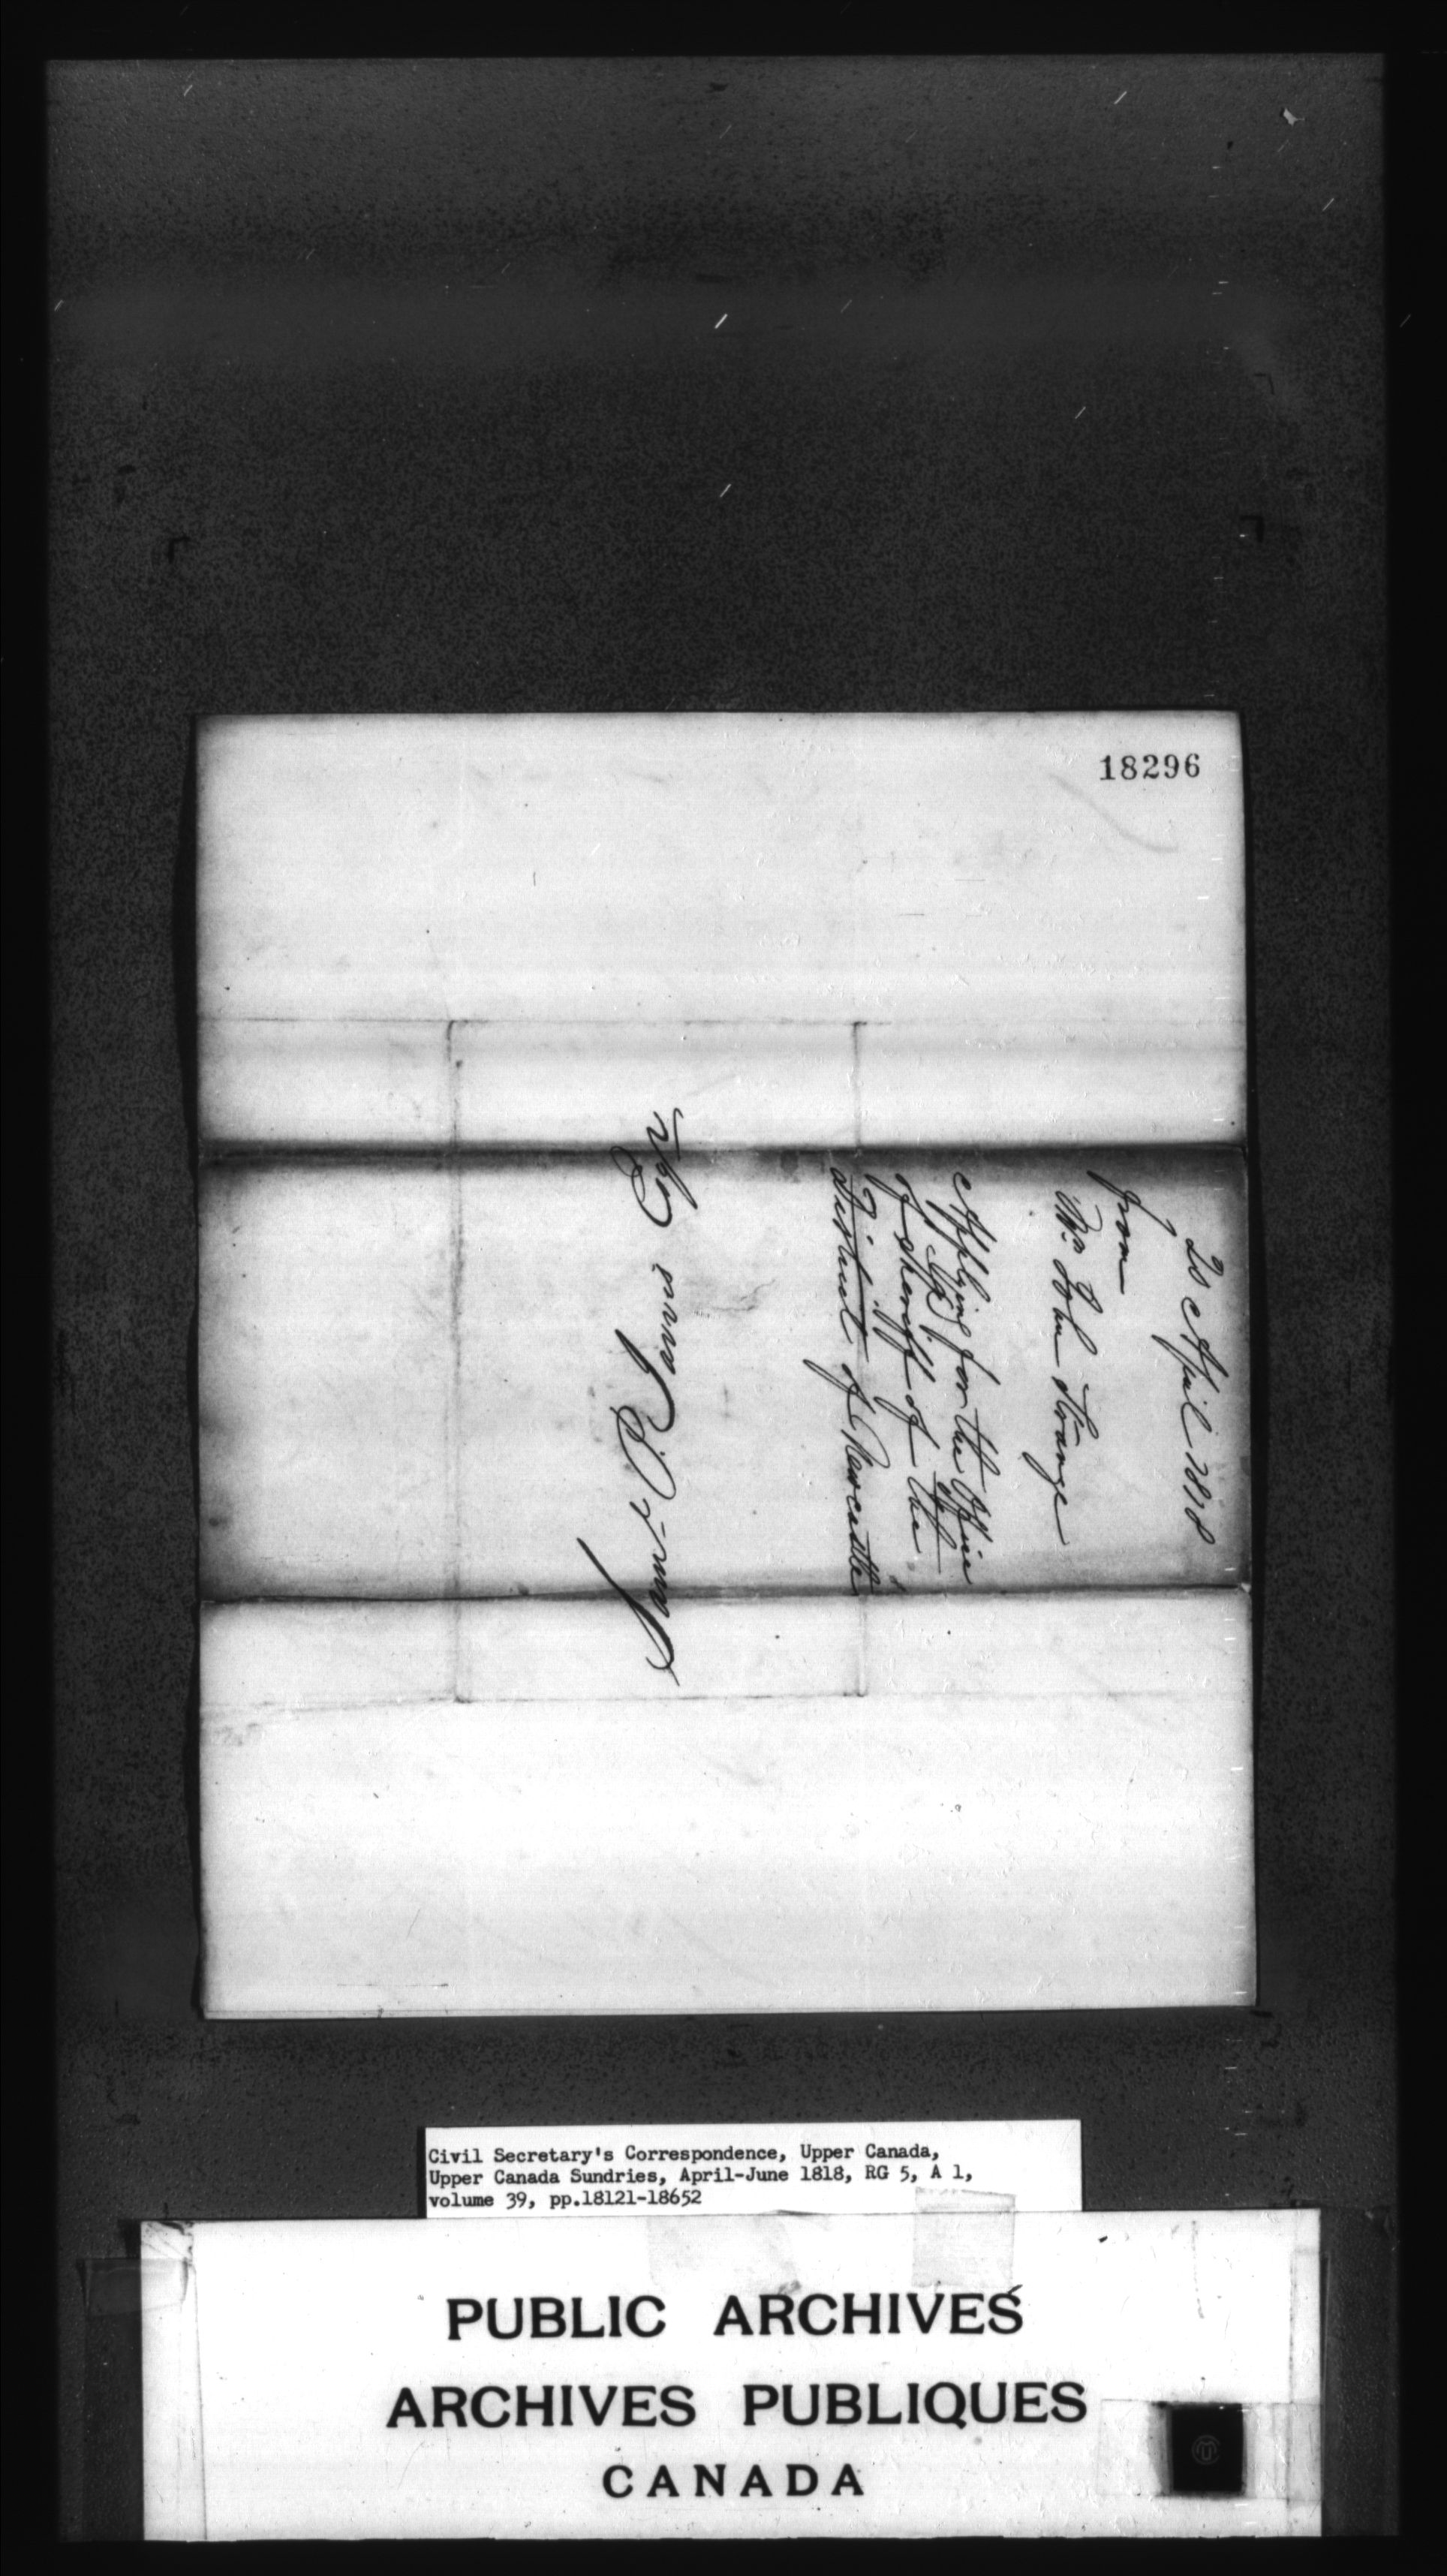 18296
20 April 1818
from
Mr. John Strange
Applying for the Office
of Sheriff of the
District of Newcastle
Esqr
Civil Secretary's Correspondence, Upper Canada,
Upper Canada Sundries, April-June 1818, RG 5, A 1,
volume 39, pp.18121-18652
PUBLIC ARCHIVES
ARCHIVES PUBLIQUES
CANADA